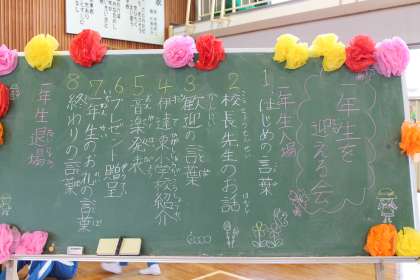 一年生を
迎える会
一年生入場
1 はじめの言葉
2 校長先生のお話
3 歓迎の言葉
4 伊達東小学校紹介
5 音楽発表
6 プレゼント贈呈
7 一年生のお礼の言葉
8 終わりの言葉
一年生退場